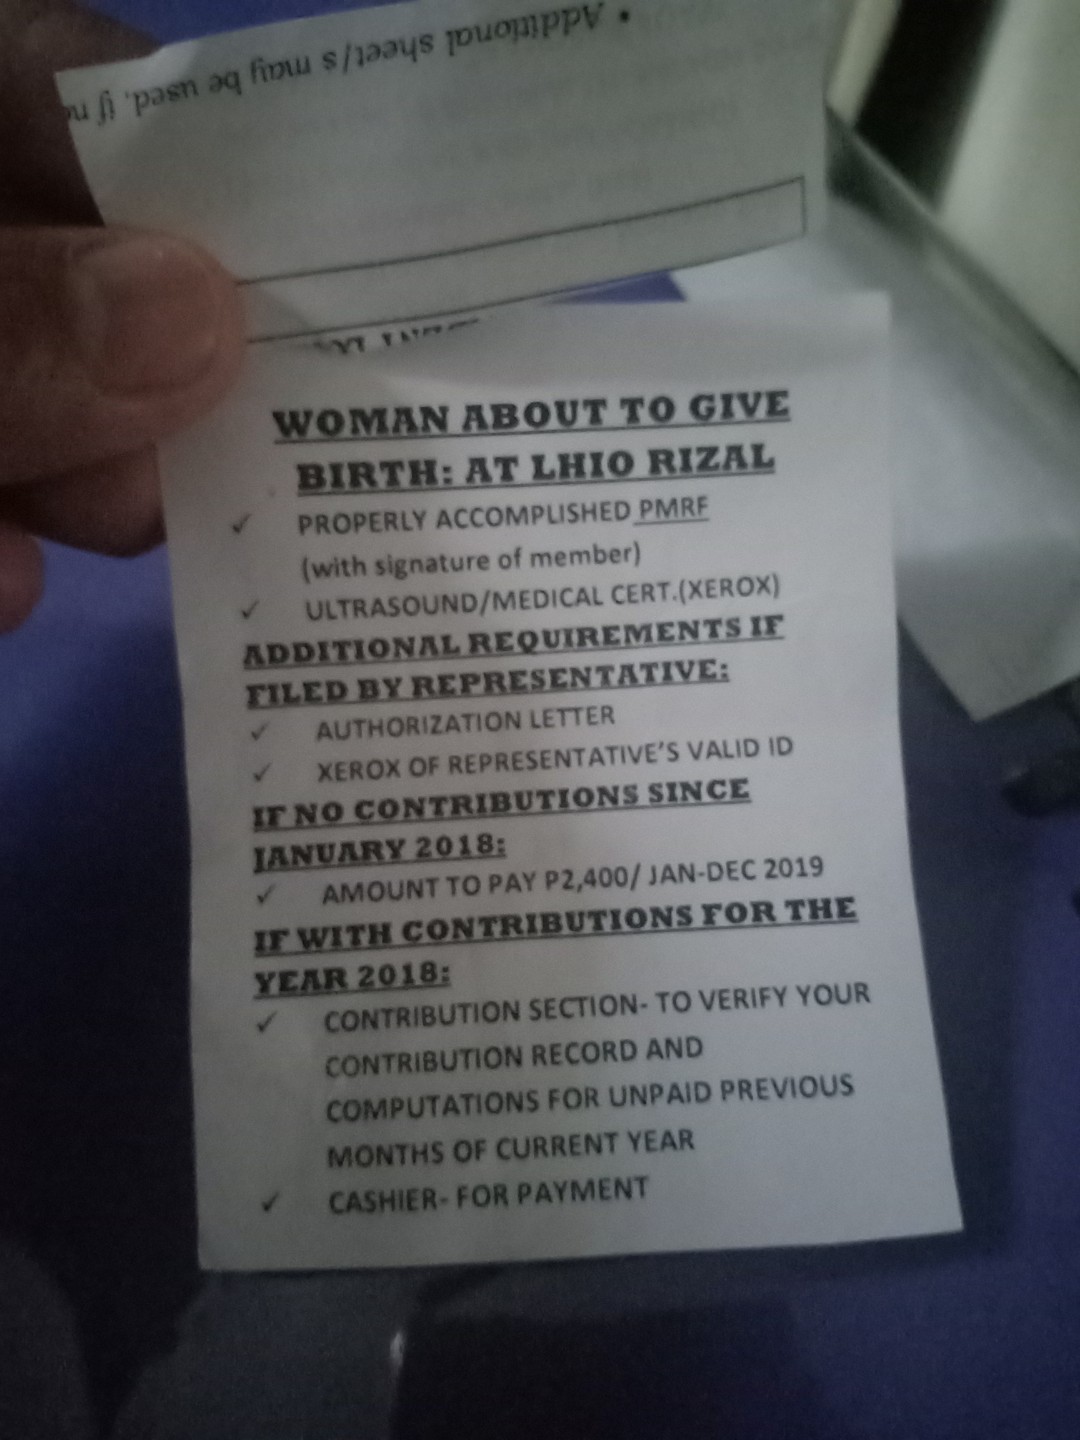 • Additional sheet/s may be used, if
WOMAN ABOUT TO GIVE
BIRTH: AT LHIO RIZAL
✓ PROPERLY ACCOMPLISHED PMRF
(with signature of member)
✓ ULTRASOUND/MEDICAL CERT.(XEROX)
ADDITIONAL REQUIREMENTS IF
FILED BY REPRESENTATIVE:
✓ AUTHORIZATION LETTER
✓ XEROX OF REPRESENTATIVE'S VALID ID
IF NO CONTRIBUTIONS SINCE
JANUARY 2018:
✓ AMOUNT TO PAY P2,400/ JAN-DEC 2019
IF WITH CONTRIBUTIONS FOR THE
YEAR 2018:
✓ CONTRIBUTION SECTION- TO VERIFY YOUR
CONTRIBUTION RECORD AND
COMPUTATIONS FOR UNPAID PREVIOUS
MONTHS OF CURRENT YEAR
✓ CASHIER- FOR PAYMENT